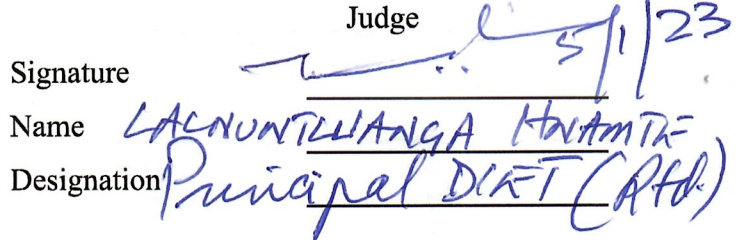 Judge
Signature 5/1/23
Name LALNUNTLUANGA HNAMTE
Designation Principal DIET (Rtd.)